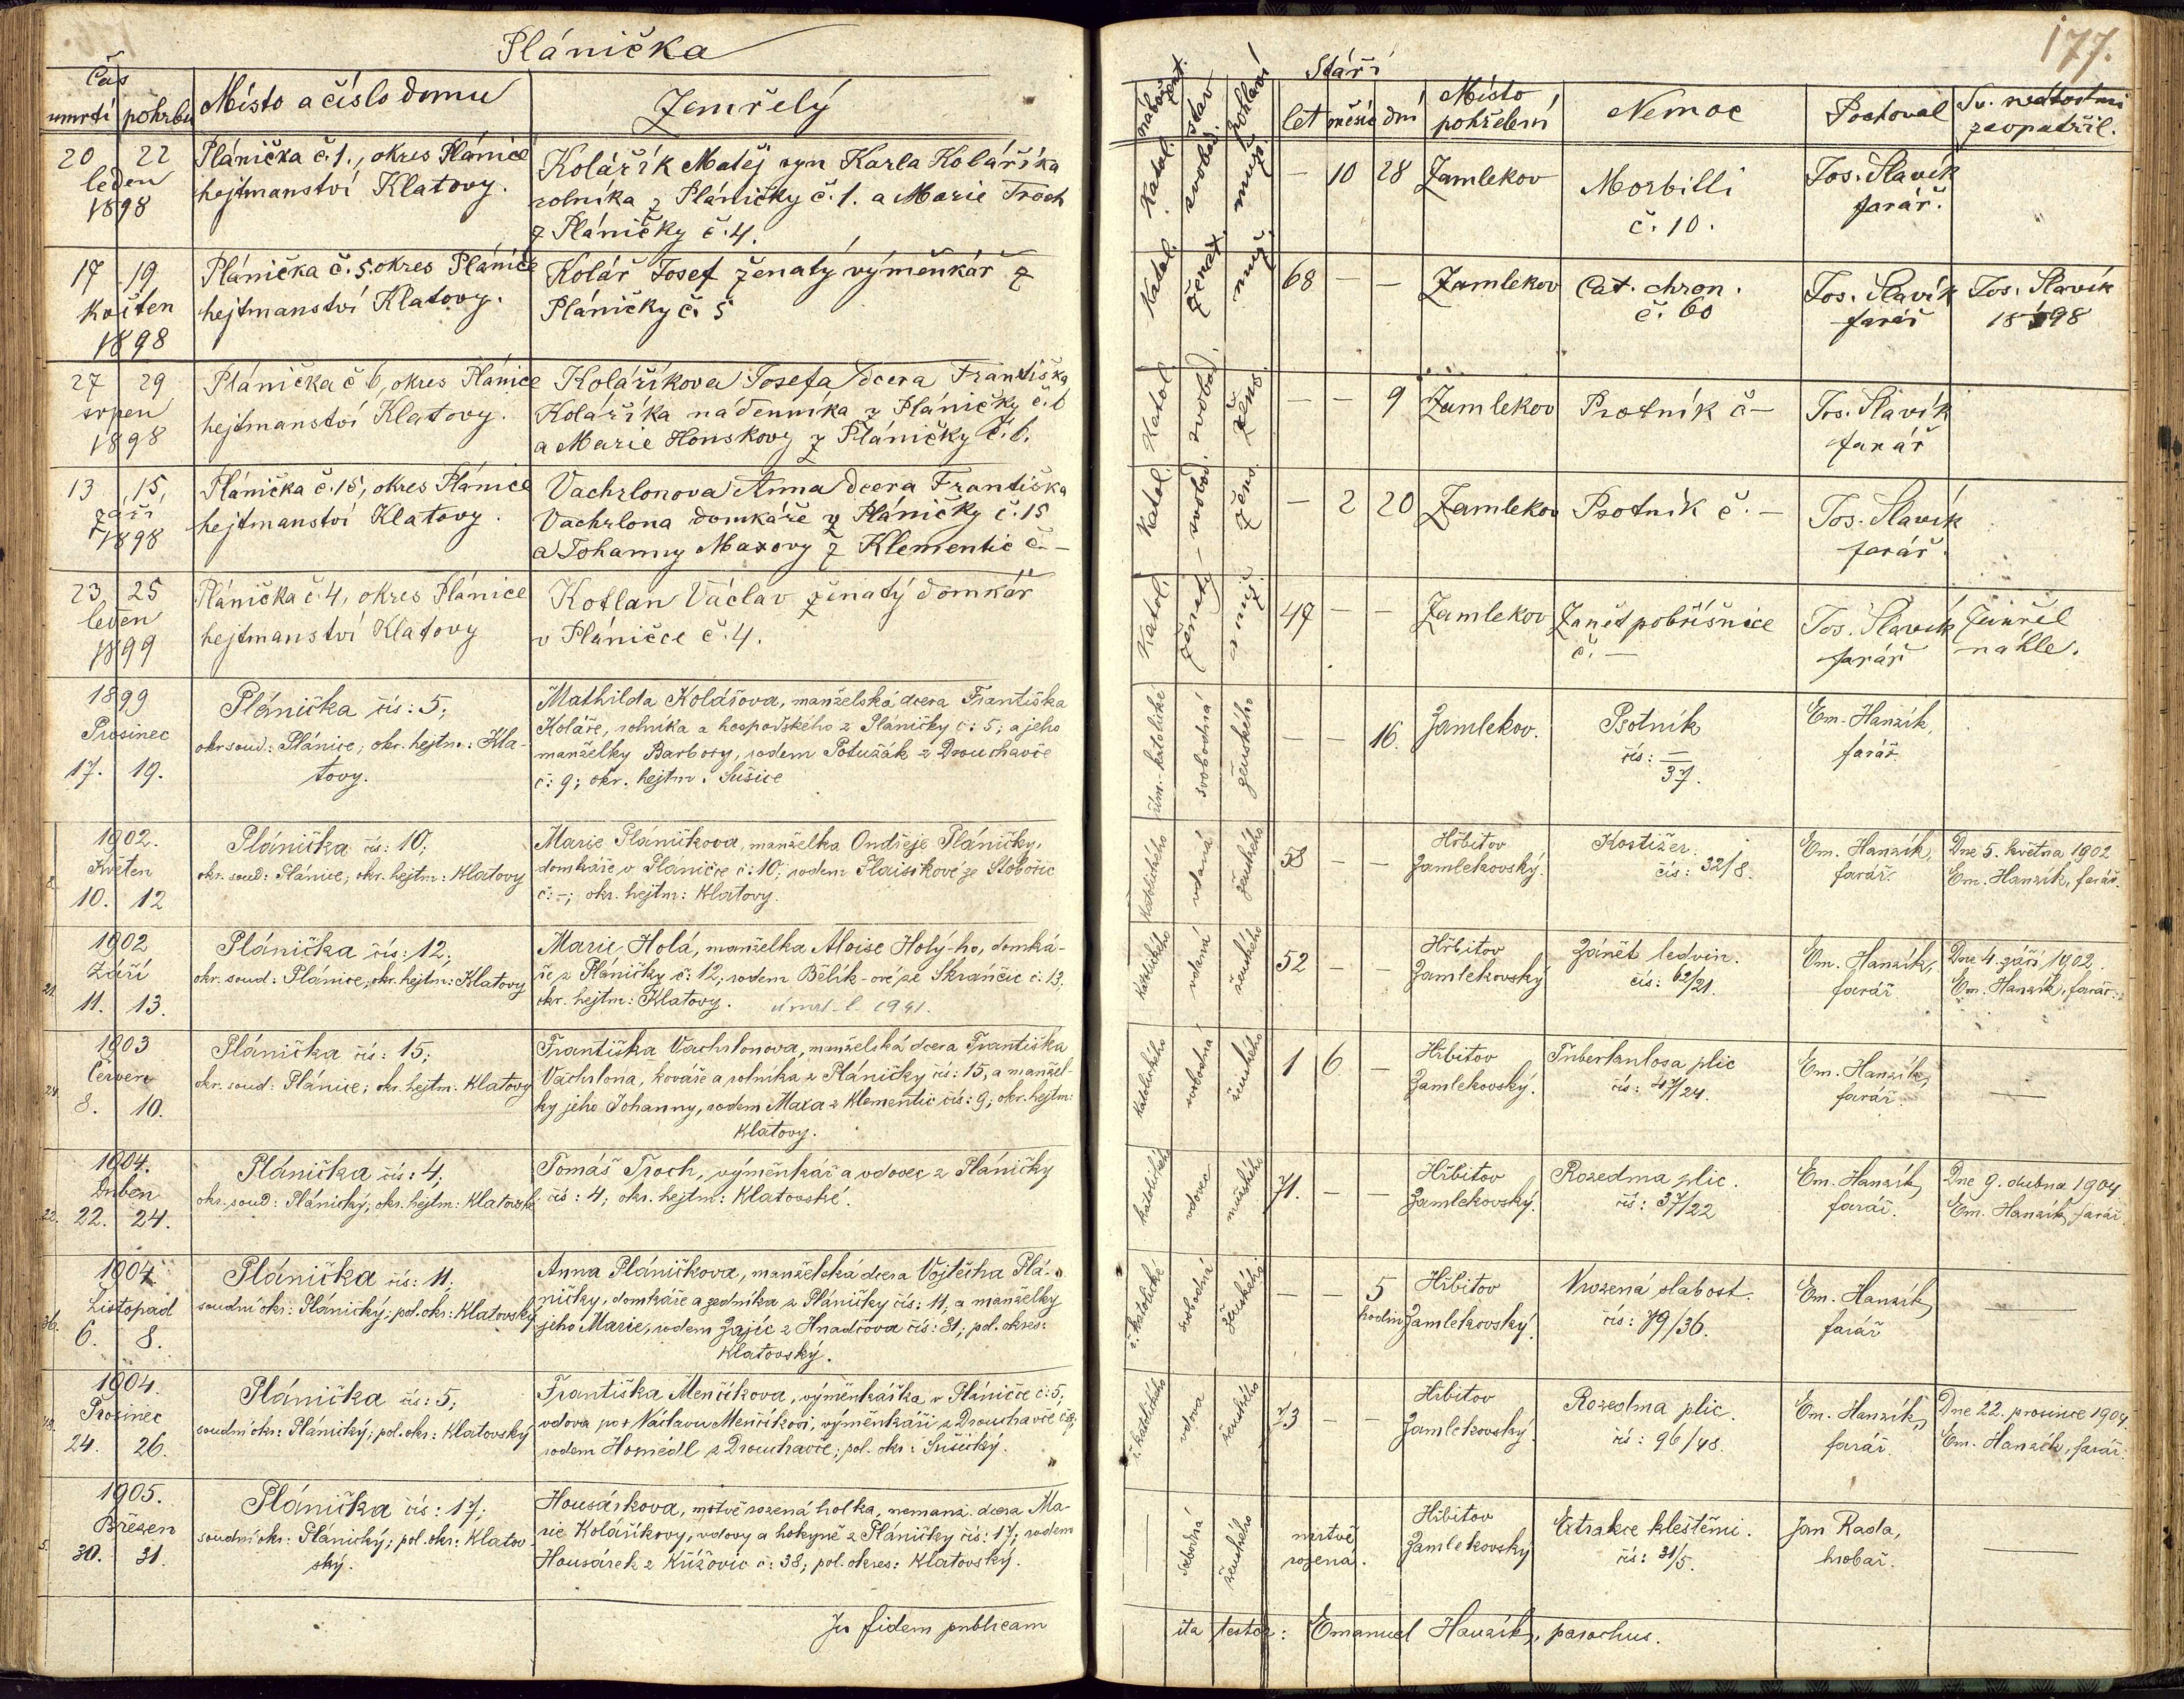 Plánička
177.
Čas
umrtí pohrbu Místo a číslo domu Zemřelý
nábožen. stav pohlaví Stáří
let měsíc dní Místo pohřební Nemoc Pochoval Sv. svátostmi zaopatřil.
20 22 Plánička č. 1., okres Plánice
leden hejtmanství Klatovy.
1898
Kolářík Matěj syn Karla Koláříka
rolníka z Pláničky č. 1. a Marie Troch
z Pláničky č. 4.
Katol. svobod. muž. — 10 28 Zamlekov Morbilli
č. 10.
Jos. Slavík
farář.
17 19 Plánička č. 5. okres Plánice
Květen hejtmanství Klatovy.
1898
Kolář Josef ženatý výměnkář z
Pláničky č. 5
Katol. ženat. muž. 68 — — Zamlekov Cat. chron.
č. 60
Jos. Slavík
farář
Jos. Slavík
98
27 29 Plánička č 6, okres Plánice
srpen hejtmanství Klatovy.
1898
Koláříkova Josefa dcera Františka
Koláříka nádenníka z Pláničky č. 6
a Marie Honskovy z Pláničky č. 6.
Katol. svobod. žens. — — 9 Zamlekov Psotník č —
Jos. Slavík
farář
13 15, Plánička č. 15, okres Plánice
září hejtmanství Klatovy.
1898
Vachrlonova Anna dcera Františka
Vachrlona domkáře z Pláničky č. 15
a Johanny Maxovy z Klementic č. —
Katol. svobod. žens. — 2 20 Zamlekov Psotník č. —
Jos. Slavík
farář.
23 25 Plánička č. 4, okres Plánice
leden hejtmanství Klatovy
1899
Kotlan Václav ženatý domkář
v Pláničce č. 4.
Katol. ženatý muž. 47 — — Zamlekov Zanět pobřišnice
č. —
Jos. Slavík
farář
Zemřel
náhle.
1899
Prosinec
17. 19.
Plánička čís: 5;
okr. soud: Plánice; okr. hejtm: Kla-
tovy.
Mathilda Kolářova, manželská dcera Františka
Koláře, rolníka a hospodského z Pláničky č: 5; a jeho
manželky Barbory, rodem Potužák z Drouhavče
č: 9; okr. hejtm. Sušice
řím.-katolické svobodná ženského — — 16. Zamlekov. Psotník
čís: —/37.
Em. Hanzík,
farář.
1902.
Květen
10. 12
Plánička čís: 10;
okr. soud: Plánice; okr. hejtm: Klatovy
Marie Pláničkova, manželka Ondřeje Pláničky,
domkáře v Pláničce č: 10; rodem
č: -; okr. hejtm: Klatovy.
katolického vdaná ženského 58 — — Hřbitov
Zamlekovský.
čís: 32/8.
Em. Hanzík,
farář.
Dne 5. května 1902
Em. Hanzík, farář.
21.
1902
Září
11. 13.
Plánička čís: 12;
okr. soud: Plánice; okr. hejtm: Klatovy
Marie Holá, manželka Aloise Holý-ho, domká-
ře z Pláničky č: 12; rodem Bělík-ové ze Skránčic č: 13;
okr. hejtm: Klatovy.
katolického vdaná ženského 52 — — Hřbitov
Zamlekovský
Zánět ledvin.
čís: 62/21.
Em. Hanzík,
farář
Dne 4. září, 1902.
Em. Hanzík, farář.
24.
1903
Červen
8. 10.
Plánička čís: 15;
okr. soud: Plánice; okr. hejtm: Klatovy
Františka Vachrlonova, manželská dcera Františka
Vachrlona, kováře a rolníka z Pláničky čís: 15, a manžel-
ky jeho Johanny, rodem Maxa z Klementic čís: 9; okr. hejtm:
Klatovy.
katolického svobodná ženského 1 6 — Hřbitov
Zamlekovský.
Tuberkulosa plic
čís: 47/24.
Em. Hanzík,
farář.
—
22.
1904.
Duben
22. 24.
Plánička čís: 4;
okr. soud: Plánický; okr. hejtm: Klatovské
Tomáš Troch, výměnkář a vdovec z Pláničky
čís: 4; okr. hejtm: Klatovské.
katolického vdovec mužského 71. — — Hřbitov
Zamlekovský.
Rozedma plic.
čís: 37/22
Em. Hanzík,
farář.
Dne 9. dubna 1904
Em. Hanzík, farář.
36.
1904
Listopad
6. 8.
Plánička čís: 11.
soudní okr: Plánický; pol. okr: Klatovský
Anna Pláničkova, manželská dcera Vojtěcha Plá-
ničky, domkáře a zedníka z Pláničky čís: 11, a manželky
jeho Marie, rodem Zajíc z Hnačova čís: 31; pol. okres:
Klatovský.
ř. katolické svobodná ženského — — 5 hodin Hřbitov
Zamlekovský.
Vrozená slabost.
čís: 79/36.
Em. Hanzík,
farář
—
1904.
Prosinec
24. 26.
Plánička čís: 5;
soudní okr: Plánický; pol. okr: Klatovský
Františka Menčíkova, výměnkářka v Pláničce č: 5,
vdova po + Václavu Menčíkovi, výměnkáři z Drouhavče
rodem z Drouhavče; pol. okr: Sušický.
ř. katolického vdova ženského 73 — — Hřbitov
Zamlekovský.
Rozedma plic.
čís: 96/48.
Em. Hanzík,
farář.
Dne 22. prosince 1904
Em. Hanzík, farář.
5.
1905.
Březen
30. 31.
Plánička čís: 17;
soudní okr: Plánický; pol. okr: Klatov-
ský.
Housárkova, mrtvě rozená holka, nemanž. dcera Ma-
rie Koláříkovy, vdovy a hokyně z Pláničky čís: 17; rodem
Housárek z Křížovic č: 38; pol. okres: Klatovský.
— svobodná ženského mrtvě
rozená.
Hřbitov
Zamlekovský
Extrakce kleštěmi.
čís: 31/5.
Jan Rada,
hrobař.
—
In fidem publicam
ita testor: Emanuel Hanzík, parochus.